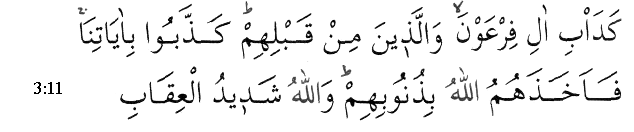 كَدَاْبِ اٰلِ فِرْعَوْنَۙ وَالَّذ۪ينَ مِنْ قَبْلِهِمْۜ كَذَّبُوا بِاٰيَاتِنَاۚ
3:11 فَاَخَذَهُمُ اللّٰهُ بِذُنُوبِهِمْۜ وَاللّٰهُ شَد۪يدُ الْعِقَابِ